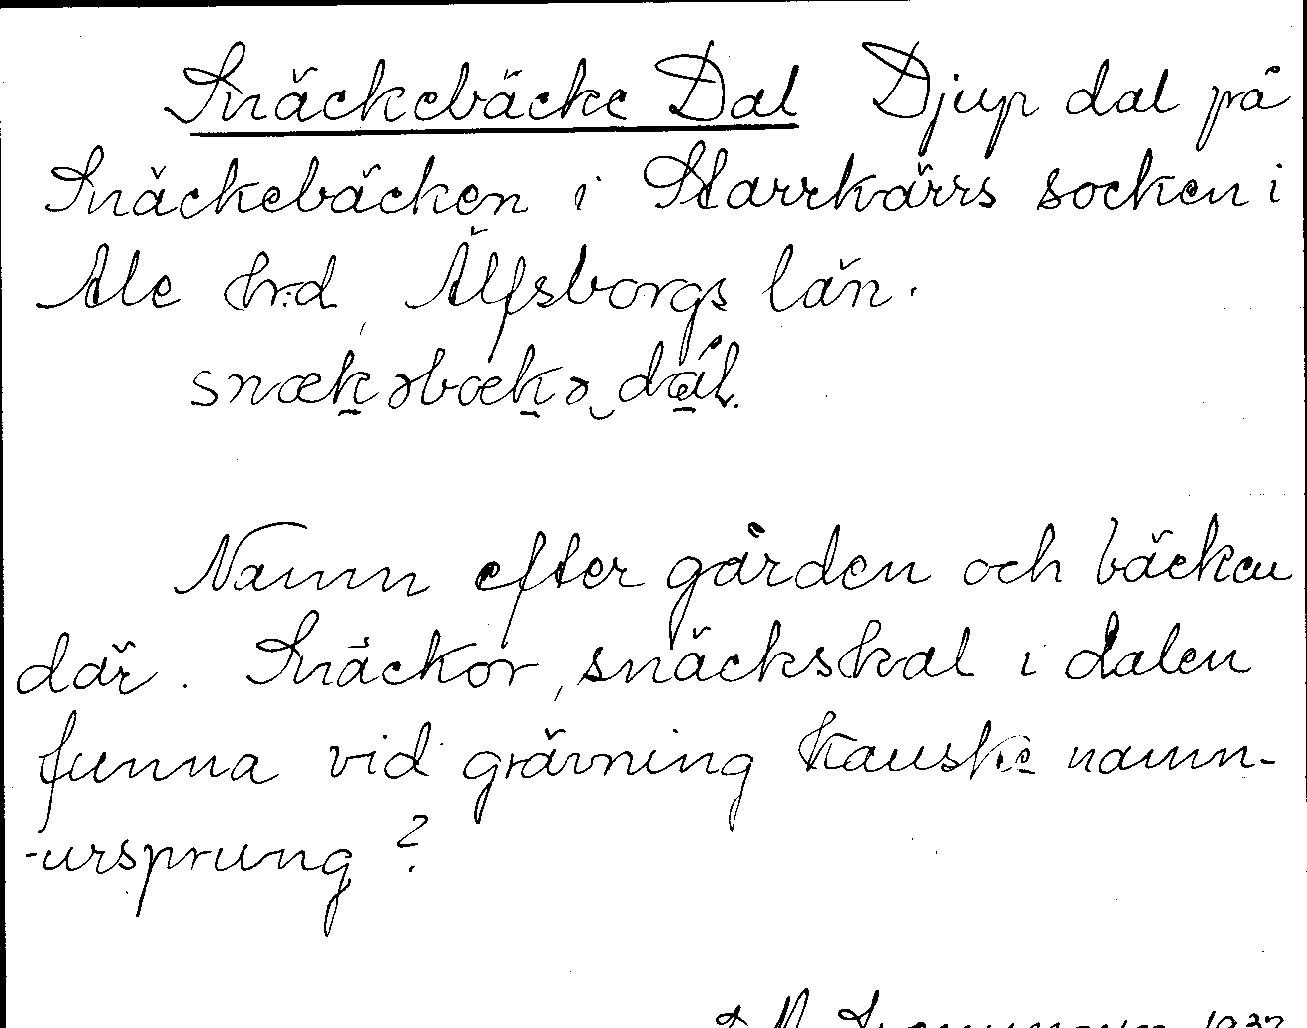 Snäckebäcke Dal Djup dal på
Snäckebäcken i Starrkärrs socken i
Ale hrd, Älfsborgs län.
snækəbækə dál.
Namn efter gården och bäcken
där. Snäckor, snäckskal i dalen
funna vid grävning kanske namn-
-ursprung?
1937